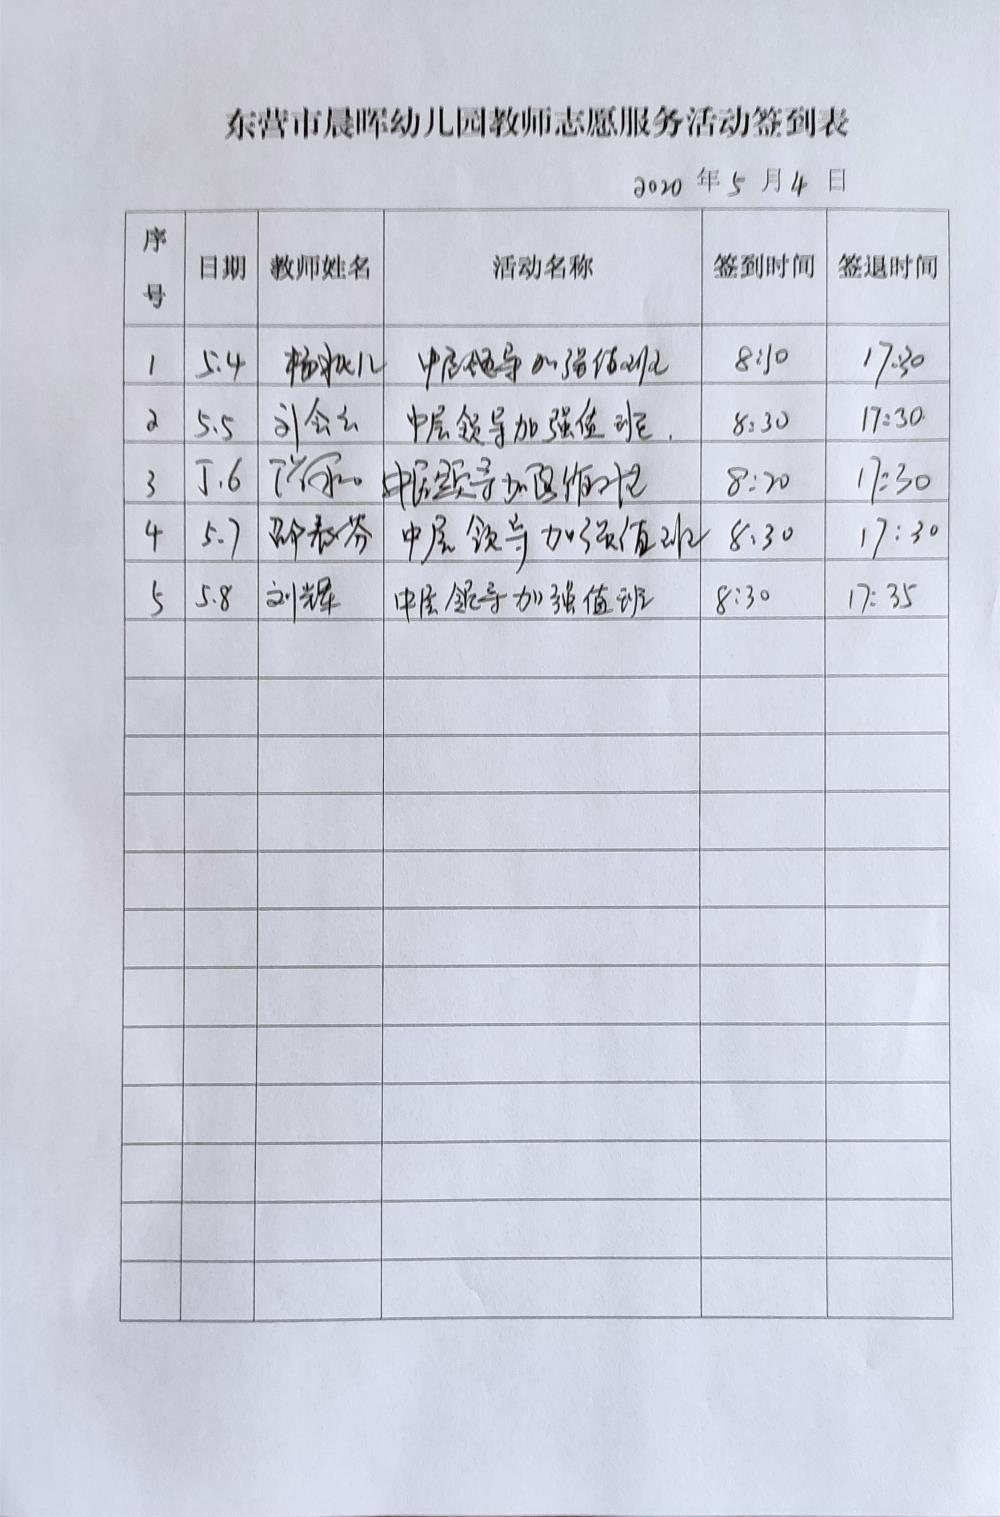 东营市晨晖幼儿园教师志愿服务活动签到表
2020 年 5 月 4 日
序号 日期 教师姓名 活动名称 签到时间 签退时间
1 5.4 中层领导加强值班 8:10 17:30
2 5.5 刘会云 中层领导加强值班. 8:30 17:30
3 5.6 中层领导加强值班 8:20 17:30
4 5.7 中层领导加强值班 8:30 17:30
5 5.8 刘辉 中层领导加强值班 8:30 17:35